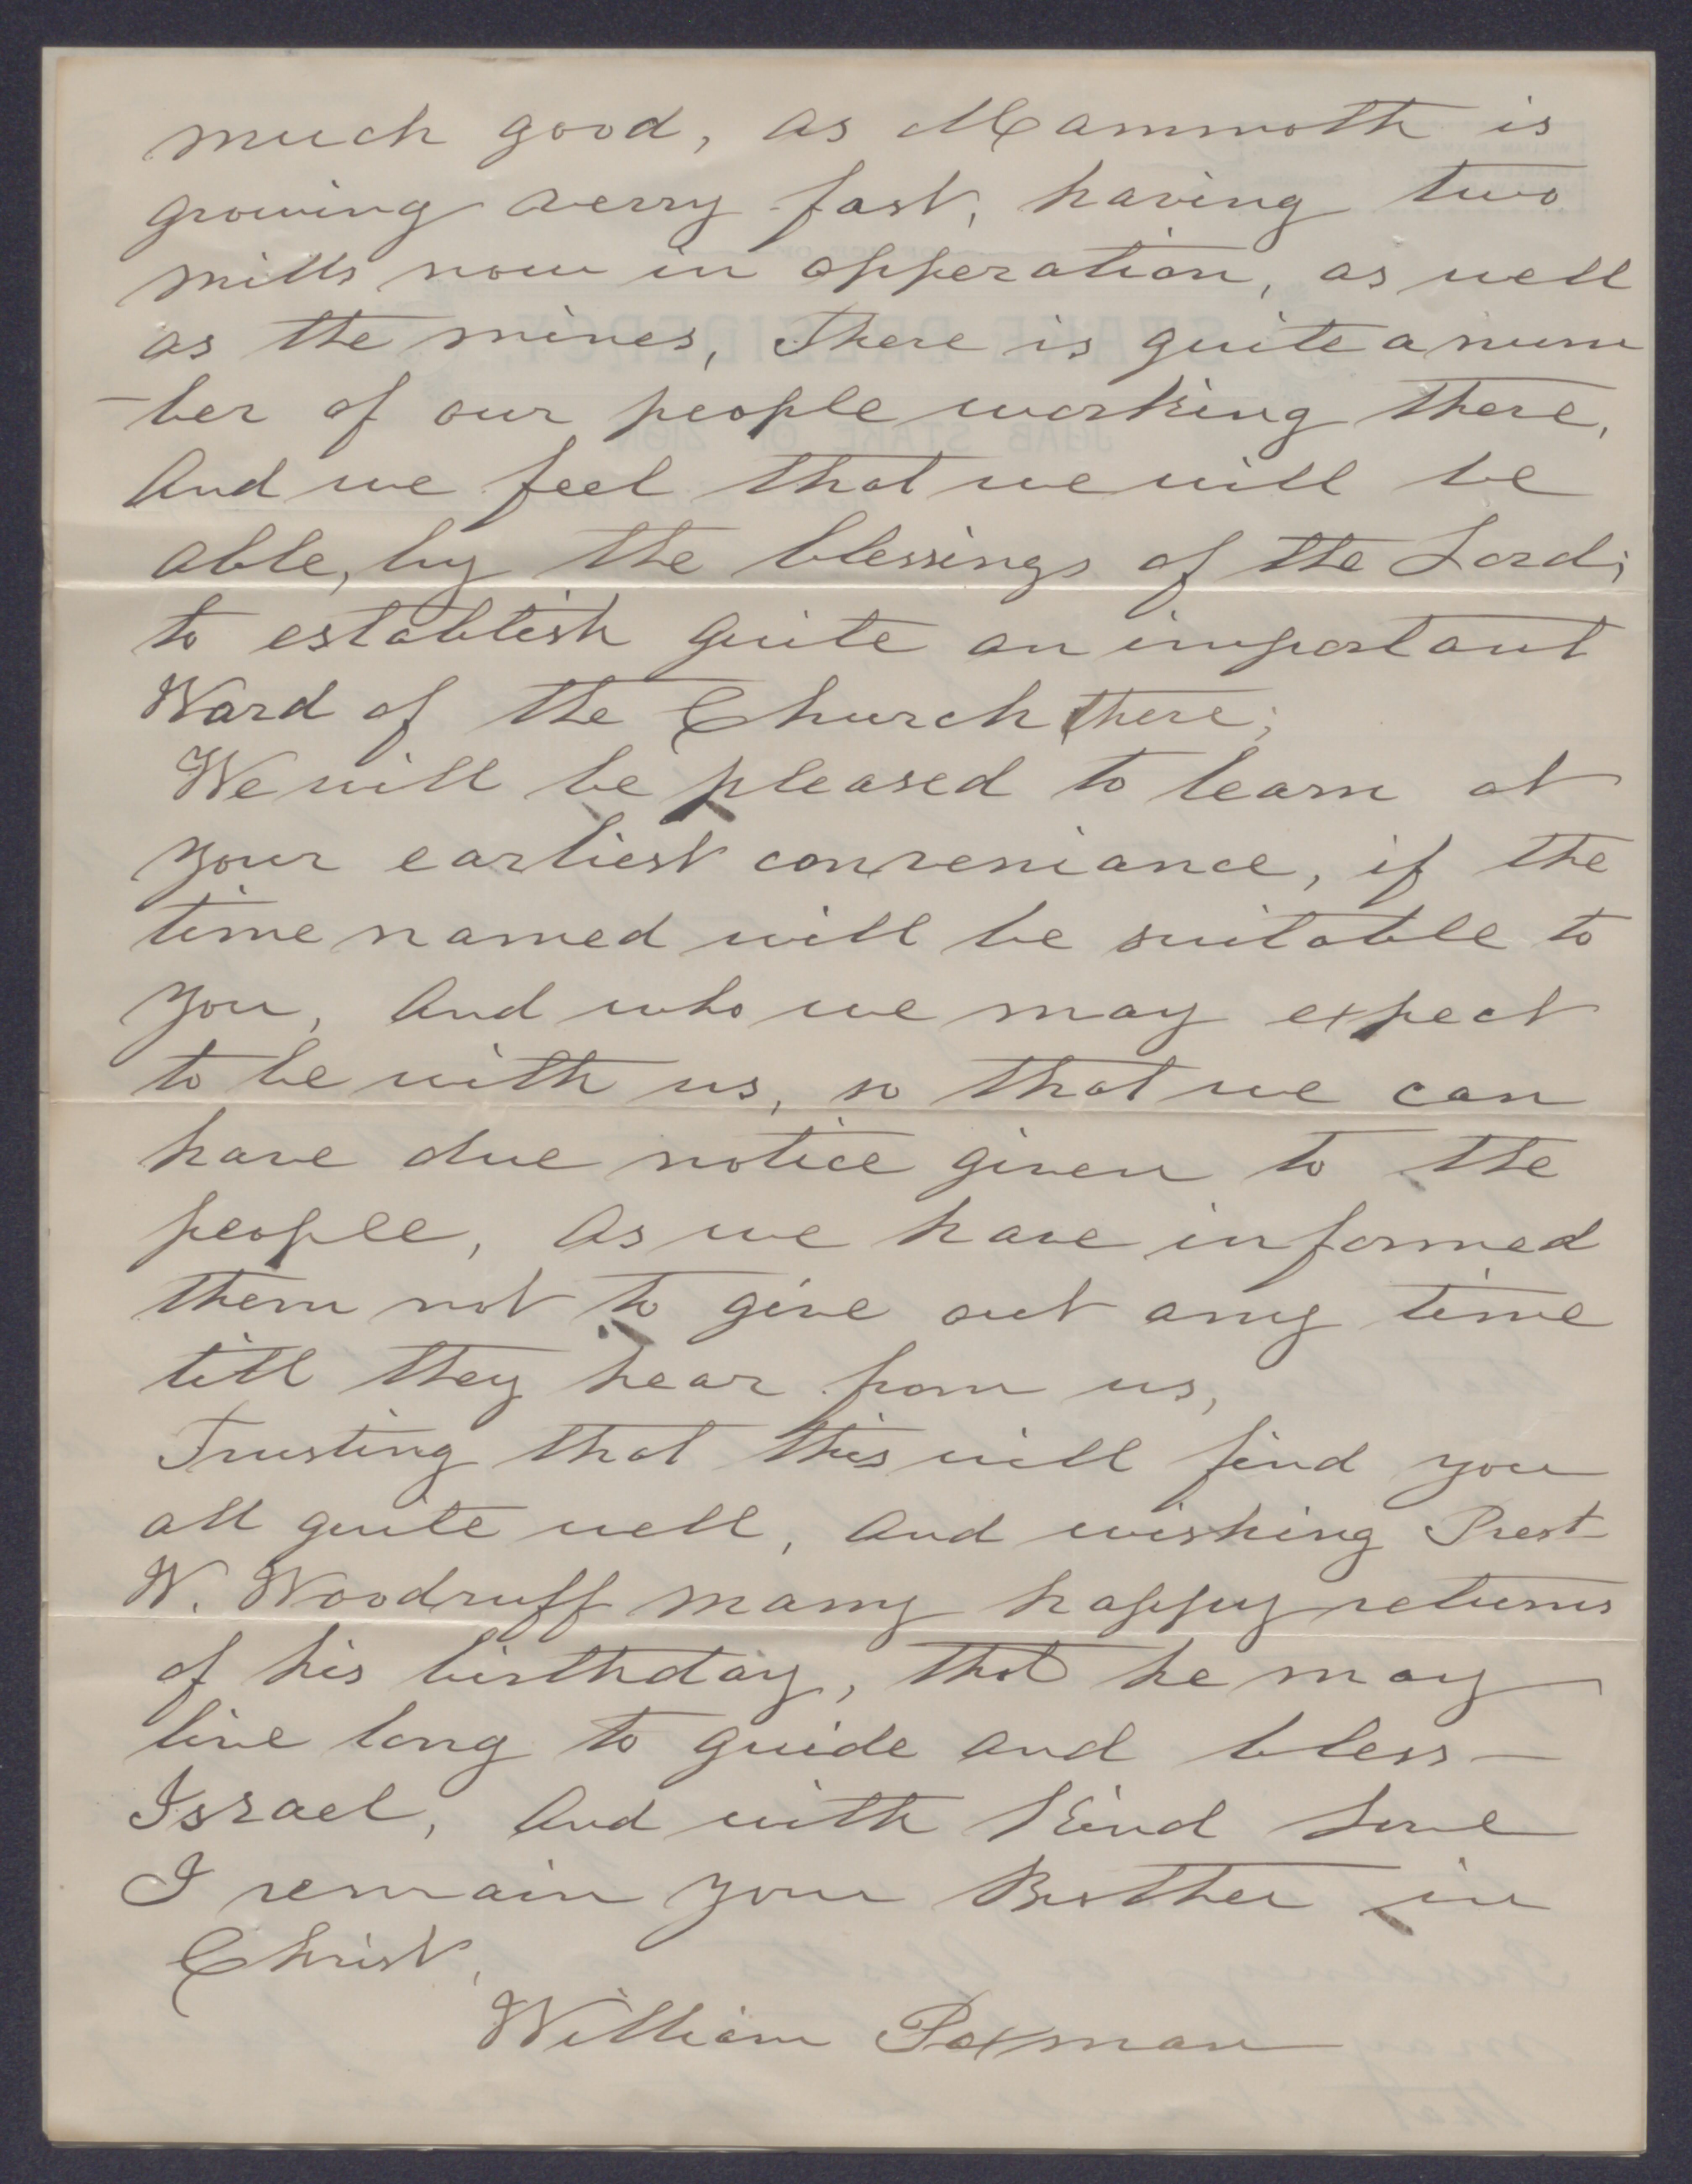 much good, as Mammoth is
growing verry fast, having two
mills now in opperation, as well
as the mines, there is quite a num
-ber of our people working there,
And we feel that we will be
able, by the blessings of the Lord;
to establish quite an important
Ward of the Church there;
We will be pleased to learn at
your earliest conveniance, if the
time named will be suitable to
you, And who we may expect
to be with us, so that we can
have due notice given to the
people, As we have informed
them not to give out any time
till they hear from us,
Trusting that this will find you
all quite well, And wishing Prest
W. Woodruff many happy returns
of his birthday, that he may
live long to guide and bless
Israel, And with Kind Love
I remain your Brother in
Christ,
William Paxman